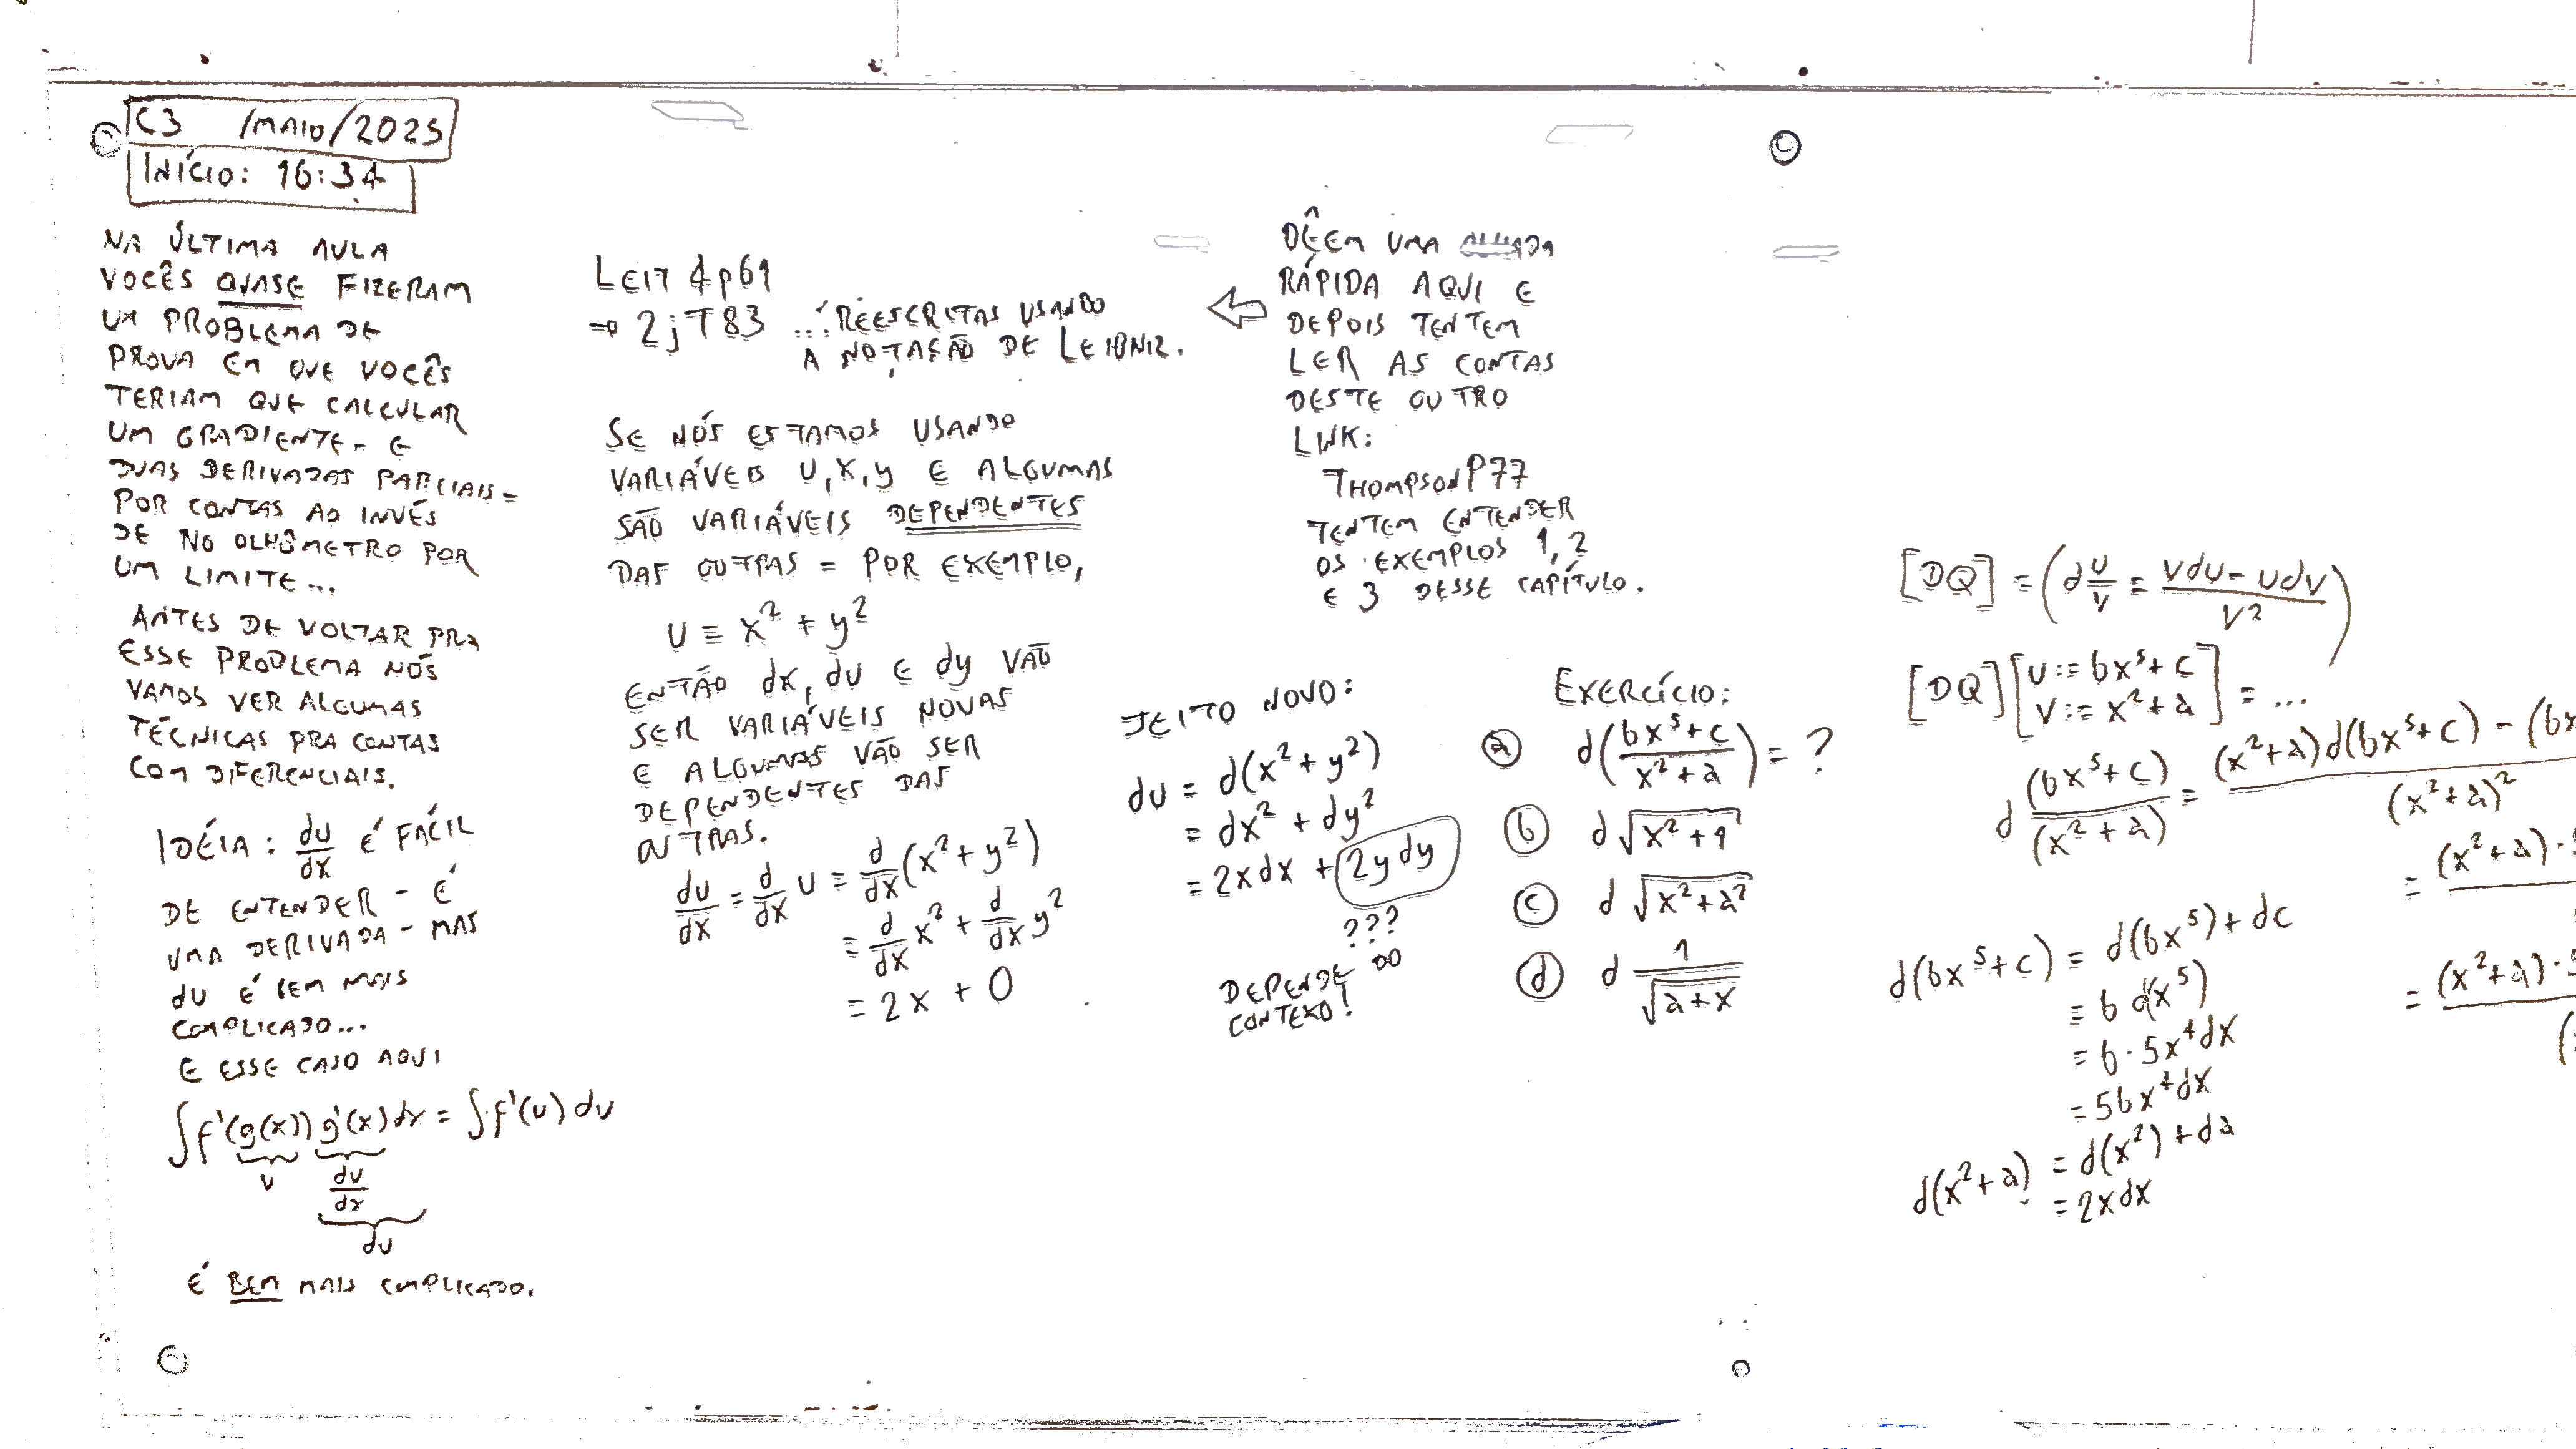 C3 /MAIO/2025
INÍCIO: 16:34
NA ÚLTIMA AULA
VOCÊS QUASE FIZERAM
UM PROBLEMA DE
PROVA EM QUE VOCÊS
TERIAM QUE CALCULAR
UM GRADIENTE - E
DUAS DERIVADAS PARCIAIS -
POR CONTAS AO INVÉS
DE NO OLHÔMETRO POR
UM LIMITE...
ANTES DE VOLTAR PRA
ESSE PROBLEMA NÓS
VAMOS VER ALGUMAS
TÉCNICAS PRA CONTAS
COM DIFERENCIAIS.
IDÉIA: du/dx É FÁCIL
DE ENTENDER - É
UMA DERIVADA - MAS
du É BEM MAIS
COMPLICADO...
E ESSE CASO AQUI
∫f'(g(x))g'(x)dx = ∫f'(u)du
u
du/dx
du
É BEM MAIS COMPLICADO.
LEIT4p61
→ 2jT83 ... REESCRITAS USANDO
A NOTAÇÃO DE LEIBNIZ.
SE NÓS ESTAMOS USANDO
VARIÁVEIS u, x, y E ALGUMAS
SÃO VARIÁVEIS DEPENDENTES
DAS OUTRAS = POR EXEMPLO,
u = x² + y²
ENTÃO dx, du E dy VÃO
SER VARIÁVEIS NOVAS
E ALGUMAS VÃO SER
DEPENDENTES DAS
OUTRAS.
du/dx = d/dx u = d/dx (x² + y²)
= d/dx x² + d/dx y²
= 2x + 0
DÊEM UMA OLHADA
RÁPIDA AQUI E
DEPOIS TENTEM
LER AS CONTAS
DESTE OUTRO
LINK:
THOMPSONP77
TENTEM ENTENDER
OS EXEMPLOS 1, 2
E 3 DESSE CAPÍTULO.
JEITO NOVO:
du = d(x² + y²)
= dx² + dy²
= 2xdx + 2ydy
???
DEPENDE DO
CONTEXO!
EXERCÍCIO:
ⓐ d((bx⁵+c)/(x²+a)) = ?
ⓑ d√(x²+1)
ⓒ d√(x²+a²)
ⓓ d 1/√(a+x)
[DQ] = (d u/v = (vdu - udv)/v²)
[DQ][u := bx⁵+c
v := x²+a] = ...
d (bx⁵+c)/(x²+a) = ((x²+a)d(bx⁵+c) - (bx
(x²+a)²
= (x²+a)·
= (x²+a)·5
d(bx⁵+c) = d(bx⁵) + dc
= b d(x⁵)
= b·5x⁴dx
= 5bx⁴dx
d(x²+a) = d(x²) + da
= 2xdx